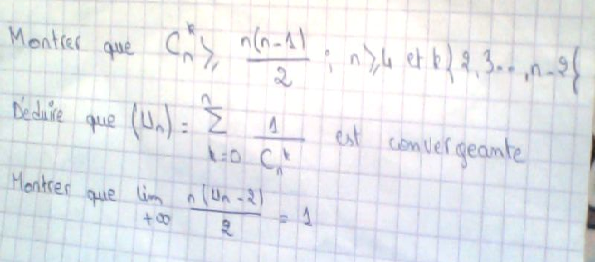 Montrer que Cₙᵏ ≥ n(n-1)/2 ; n ≥ 4 et k{2,3..,n-2{
Déduire que (Uₙ) = Σₖ₌₀ⁿ 1/Cₙᵏ est convergeante
Montrer que lim +∞ n(Uₙ-2)/2 = 1